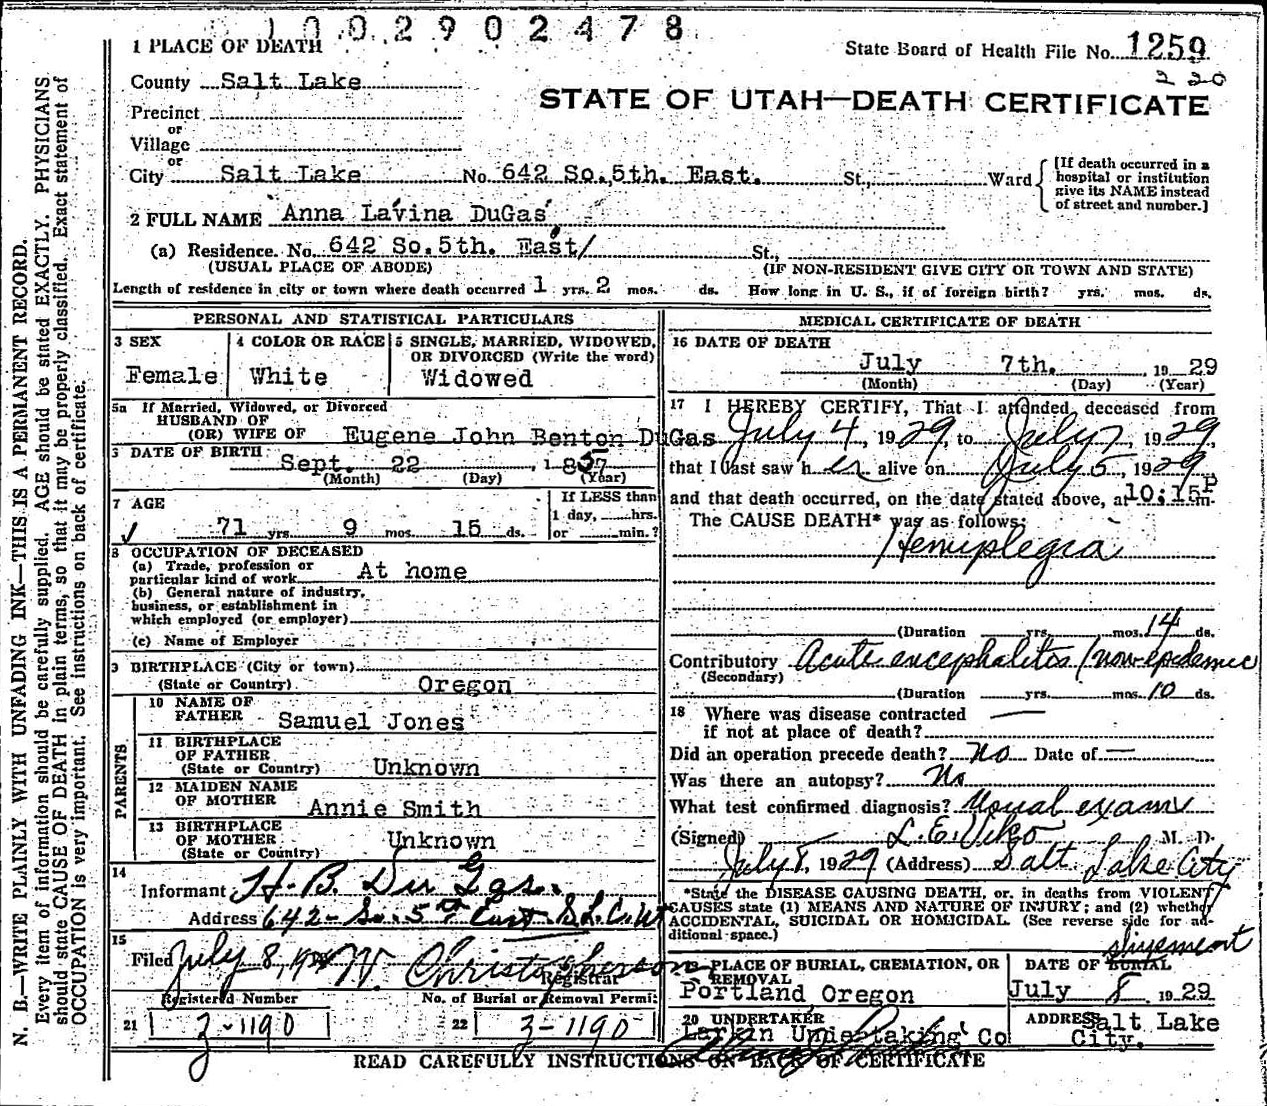 1002902478
1 PLACE OF DEATH
State Board of Health File No. 1259
220
County Salt Lake
STATE OF UTAH—DEATH CERTIFICATE
Precinct
or
Village
or
City Salt Lake No. 642 So.5th. East. St., Ward
[If death occurred in a
hospital or institution
give its NAME instead
of street and number.]
2 FULL NAME Anna Lavina DuGas
(a) Residence. No. 642 So.5th. East/ St.,
(USUAL PLACE OF ABODE) (IF NON-RESIDENT GIVE CITY OR TOWN AND STATE)
Length of residence in city or town where death occurred 1 yrs. 2 mos. ds. How long in U. S., if of foreign birth? yrs. mos. ds.
PERSONAL AND STATISTICAL PARTICULARS
3 SEX
Female
4 COLOR OR RACE
White
5 SINGLE, MARRIED, WIDOWED,
OR DIVORCED (Write the word)
Widowed
5a If Married, Widowed, or Divorced
HUSBAND OF
(OR) WIFE OF Eugene John Benton DuGas
DATE OF BIRTH
Sept. 22, 1857
(Month) (Day) (Year)
7 AGE
71 yrs. 9 mos. 15 ds.
If LESS than
1 day, hrs.
or min.?
8 OCCUPATION OF DECEASED
(a) Trade, profession or
particular kind of work At home
(b) General nature of industry,
business, or establishment in
which employed (or employer)
(c) Name of Employer
9 BIRTHPLACE (City or town)
(State or Country) Oregon
PARENTS
10 NAME OF
FATHER Samuel Jones
11 BIRTHPLACE
OF FATHER
(State or Country) Unknown
12 MAIDEN NAME
OF MOTHER Annie Smith
13 BIRTHPLACE
OF MOTHER
(State or Country) Unknown
14
Informant H. B. Du Gas.
Address 642 - So. 5th East S.L.C. Ut
15
Filed July 8, W. Christopherson
Registrar
Registered Number No. of Burial or Removal Permit
21 3-1190 22 3-1190
MEDICAL CERTIFICATE OF DEATH
16 DATE OF DEATH
July 7th. 1929
(Month) (Day) (Year)
17 I HEREBY CERTIFY, That I attended deceased from
July 4, 1929, to July 7, 1929,
that I last saw her alive on July 5, 1929
and that death occurred, on the date stated above, at 10:15P m.
The CAUSE DEATH* was as follows:
Hemiplegia
(Duration yrs. mos. 14 ds.
Contributory Acute encephalitis (non-epidemic
(Secondary)
(Duration yrs. mos. 10 ds.
18 Where was disease contracted
if not at place of death? —
Did an operation precede death? No Date of —
Was there an autopsy? No
What test confirmed diagnosis? Usual exam
(Signed) L. E. Viko M. D.
July 8, 1929 (Address) Salt Lake City
*State the DISEASE CAUSING DEATH, or, in deaths from VIOLENT
CAUSES state (1) MEANS AND NATURE OF INJURY; and (2) whether
ACCIDENTAL, SUICIDAL OR HOMICIDAL. (See reverse side for ad-
ditional space.)
shipment
PLACE OF BURIAL, CREMATION, OR
REMOVAL
Portland Oregon
DATE OF BURIAL
July 8 1929
20 UNDERTAKER
Larkin Undertaking Co
ADDRESS Salt Lake
City.
READ CAREFULLY INSTRUCTIONS ON BACK OF CERTIFICATE
N. B.—WRITE PLAINLY WTH UNFADING INK—THIS IS A PERMANENT RECORD.
Every item of information should be carefully supplied. AGE should be stated EXACTLY. PHYSICIANS
should state CAUSE OF DEATH in plain terms, so that it may be properly classified. Exact statement of
OCCUPATION is very important. See instructions on back of certificate.